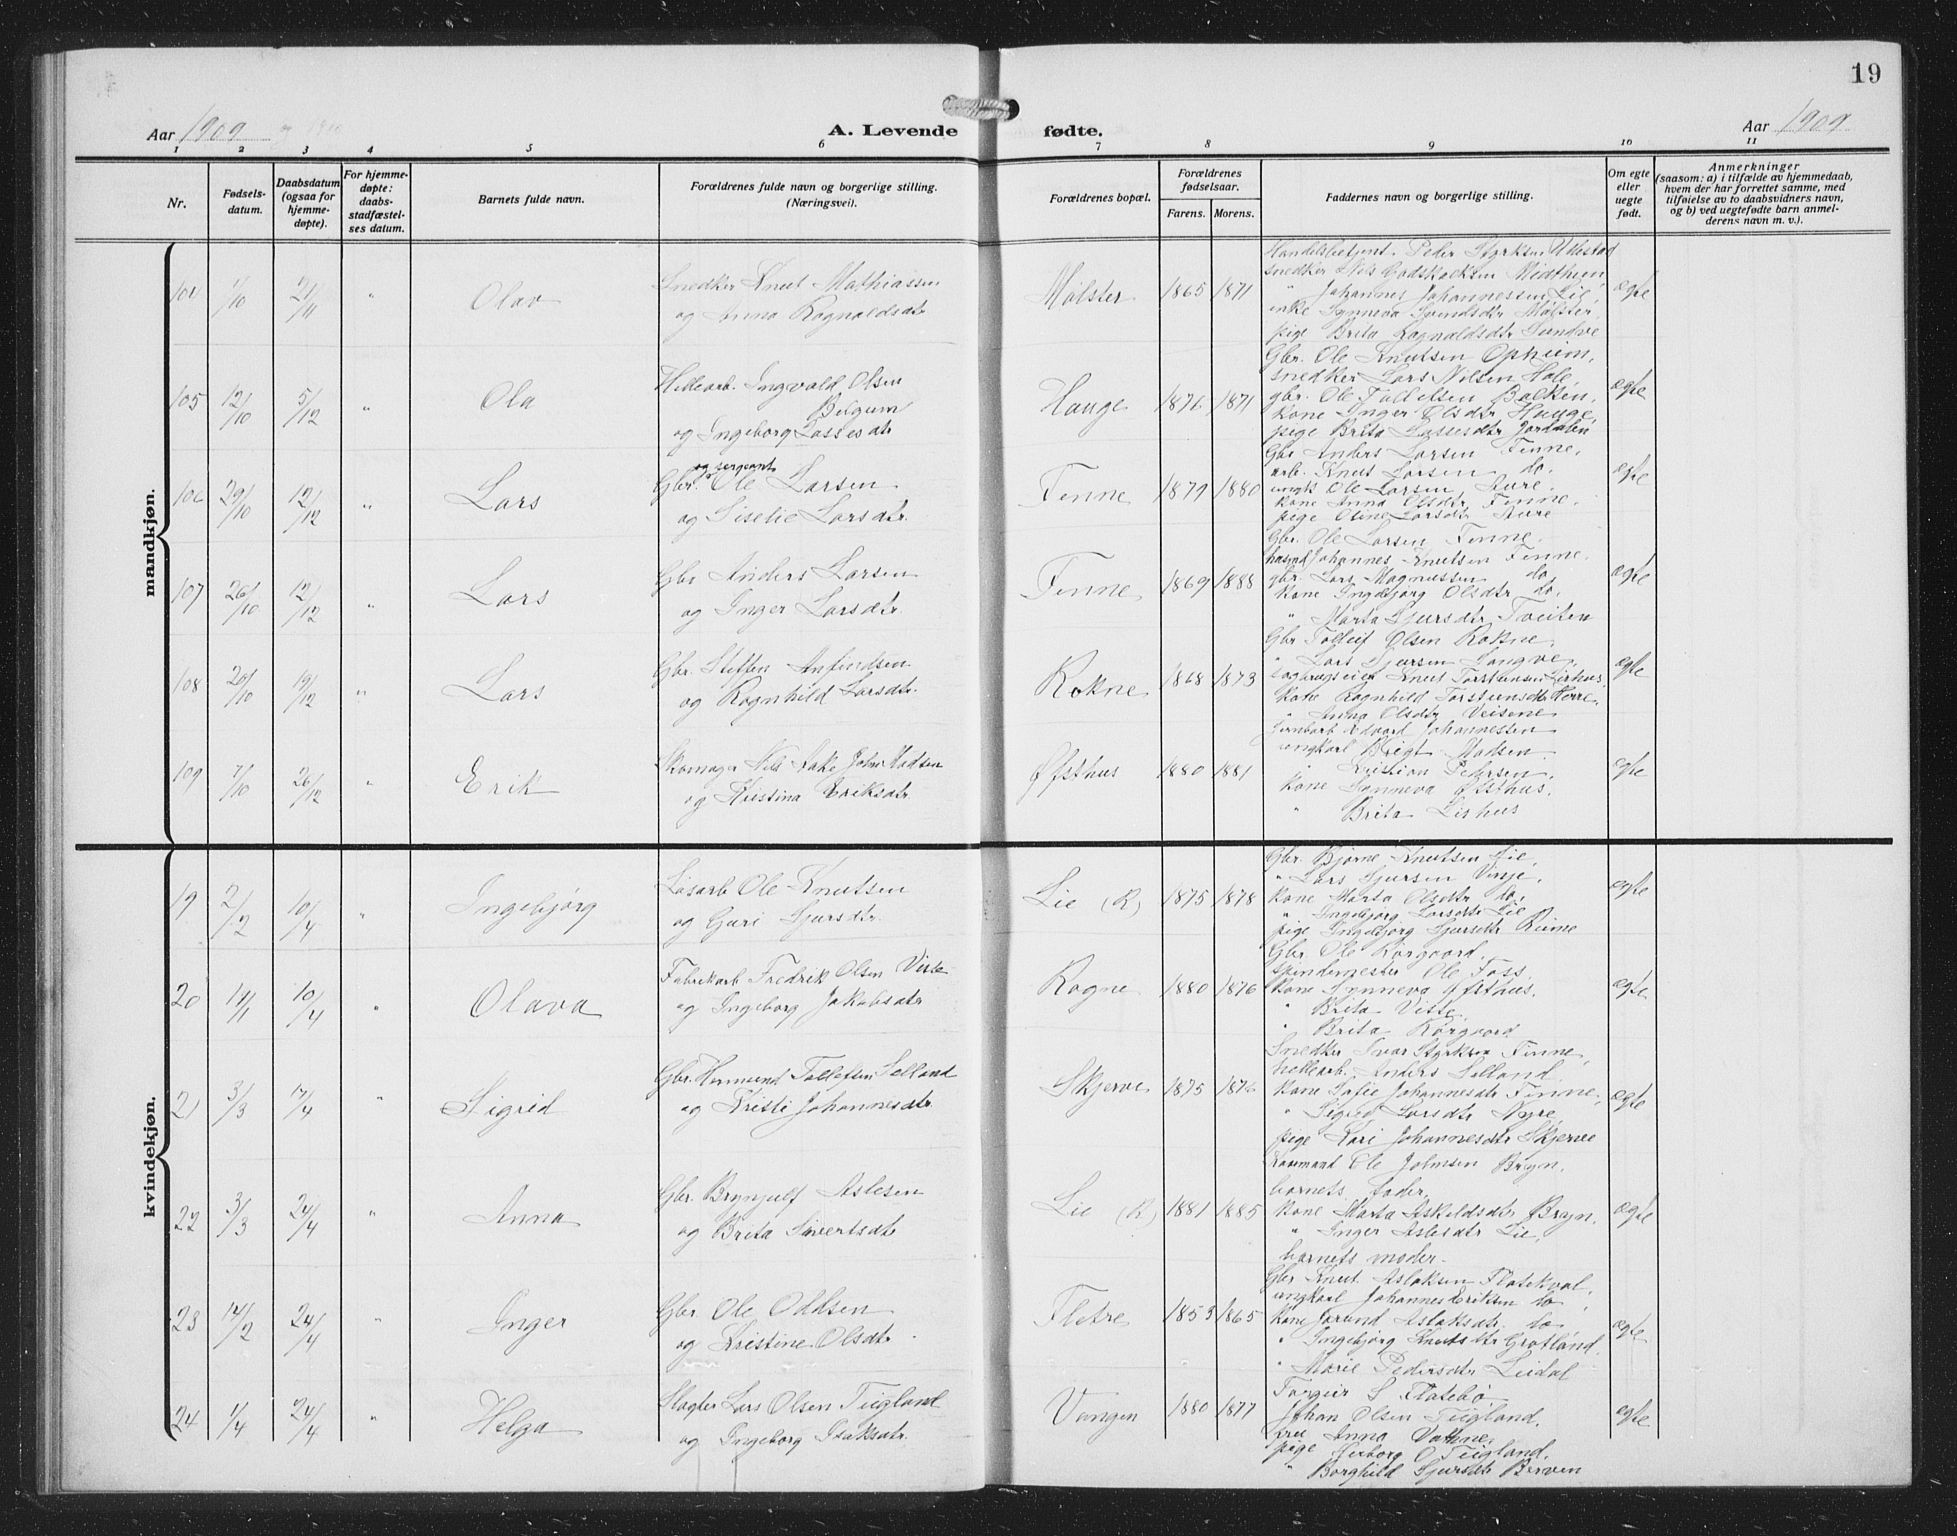 19
Aar 1909
A. Levende fødte.
Aar 1909
1 2 3 4 5 6 7 8 9 10 11
Nr.
Fødsels-
datum.
Daabsdatum
(ogsaa for
hjemme-
døpte).
For hjemme-
døpte:
daabs-
stadfæstel-
ses datum.
Barnets fulde navn.
Forældrenes fulde navn og borgerlige stilling.
(Næringsvei).
Forældrenes bopæl.
Forældrenes
fødselsaar.
Farens. Morens.
Faddernes navn og borgerlige stilling.
Om egte
eller
uegte
født.
Anmerkninger
(saasom: a) i tilfælde av hjemmedaab,
hvem der har forrettet samme, med
tilføielse av to daabsvidners navn,
og b) ved uegtefødte barn anmel-
derens navn m. v.).
mandkjøn.
104 1/10 21/11 " Olav
Snedker Knut Mathiassen
og Anna Ragnaldsdtr
Mølster 1865 1871
Handelsbetjent Peder Styrksen
snedker Nils Godskalksen
" Johannes Johannessen Lie,
Synneva Svendsdtr Mølster,
pige Brita Ragnaldsdtr
ægte
105 12/10 5/12 " Ola
Ingvald Olsen
og Ingeborg Lassesdtr
Hauge 1876 1871
Gbr. Ole Knutsen Opheim,
snedker Lars Nilsen Hole,
gbr. Ole
kone Inger Olsdtr Hauge,
pige Brita Lassesdtr Jordalen
ægte
106 29/10 12/12 " Lars
og sergeant
Gbr. Ole Larsen
og Siselie Larsdtr.
Finne 1879 1880
Gbr Anders Larsen Finne,
arb. Knut Larsen do.
ungk Ole Larsen Aure.
kone Anna Olsdtr Finne.
pige Oline Larsdtr Aure
ægte
107 26/10 12/12 " Lars
Gbr Anders Larsen
og Inger Larsdtr.
Finne 1869 1888
Gbr. Ole Larsen Finne.
Johannes Knutsen Finne.
gbr. Lars Magnussen do.
kone Ingebjørg Olsdtr do.
" Marta Sjursdtr Tveiten
ægte
108 20/10 19/12 " Lars
Gbr. Steffen Anfindsen
og Ragnhild Larsdtr.
Rokne 1868 1873
Gbr Tolleif Olsen Rokne,
" Lars Sjursen
Knut Torsteinsen
kone Ragnhild Torsteinsdtr Herre,
" Anna Olsdtr
ægte
109 7/10 26/12 " Erik
Skomager Nils John Madsen
og Kristina Eriksdtr
Øfsthus 1880 1881
Edvard Johannessen
ungkarl Madsen
" Kristian Pedersen,
kone Synneva Øfsthus,
" Brita
ægte
kvindekjøn.
19 2/2 10/4 " Ingebjørg
Løsarb Ole Knutsen
og Guri Sjursdtr.
Lie (R) 1875 1878
Gbr. Bjørne Knutsen Lie,
" Lars Sjursen Vinje,
kone Marta Olsdtr do,
" Ingebjørg Larsdtr Lie
pige Ingebjørg Sjursdtr Rime
ægte
20 14/1 10/4 " Olava
Fabrikarb Fredrik Olsen
og Ingeborg Jakobsdtr
Rogne 1880 1876
Gbr Ole Kørgaard,
spindemester Ole Foss,
kone Synneva Øfsthus,
" Brita
" Brita Kørgaard
ægte
21 3/3 17/4 " Sigrid
Gbr. Hermund Tollefsen Selland
og Kristi Johannesdtr.
Skjerve 1875 1876
Snedker Ivar Styrksen Finne,
hellearb. Anders Selland
kone Sofie Johannesdtr Finne,
" Sigrid Larsdtr Nyre,
pige Kari Johannesdtr Skjerve
ægte
22 3/3 24/4 " Anna
Gbr. Brynjulf Aslesen
og Brita Sivertsdtr
Lie (R) 1881 1885
Ole Johnsen Bryn,
barnets fader,
kone Marta Askildsdtr Bryn,
" Inger Aslesdtr Lie,
barnets moder.
ægte
23 14/2 24/4 " Inger
Gbr Ole Oddsen
og Kristine Olsdtr
Flatre 1853 1865
Gbr Knut Aslaksen Flatekval,
ungkarl Johannes Eriksen do,
kone Jorund Aslaksdtr do
" Ingebjørg Knutsdtr Grøtland,
" Marie Pedersdtr
ægte
24 1/4 24/4 " Helga
Slagter Lars Olsen Tugland
og Ingeborg Isaksdtr.
Vangen 1880 1877
Torgeir S. Flatebø
Johan Olsen Tugland,
fru Anna
pige Herborg O Tugland,
" Borghild Sjursdtr Berven
ægte